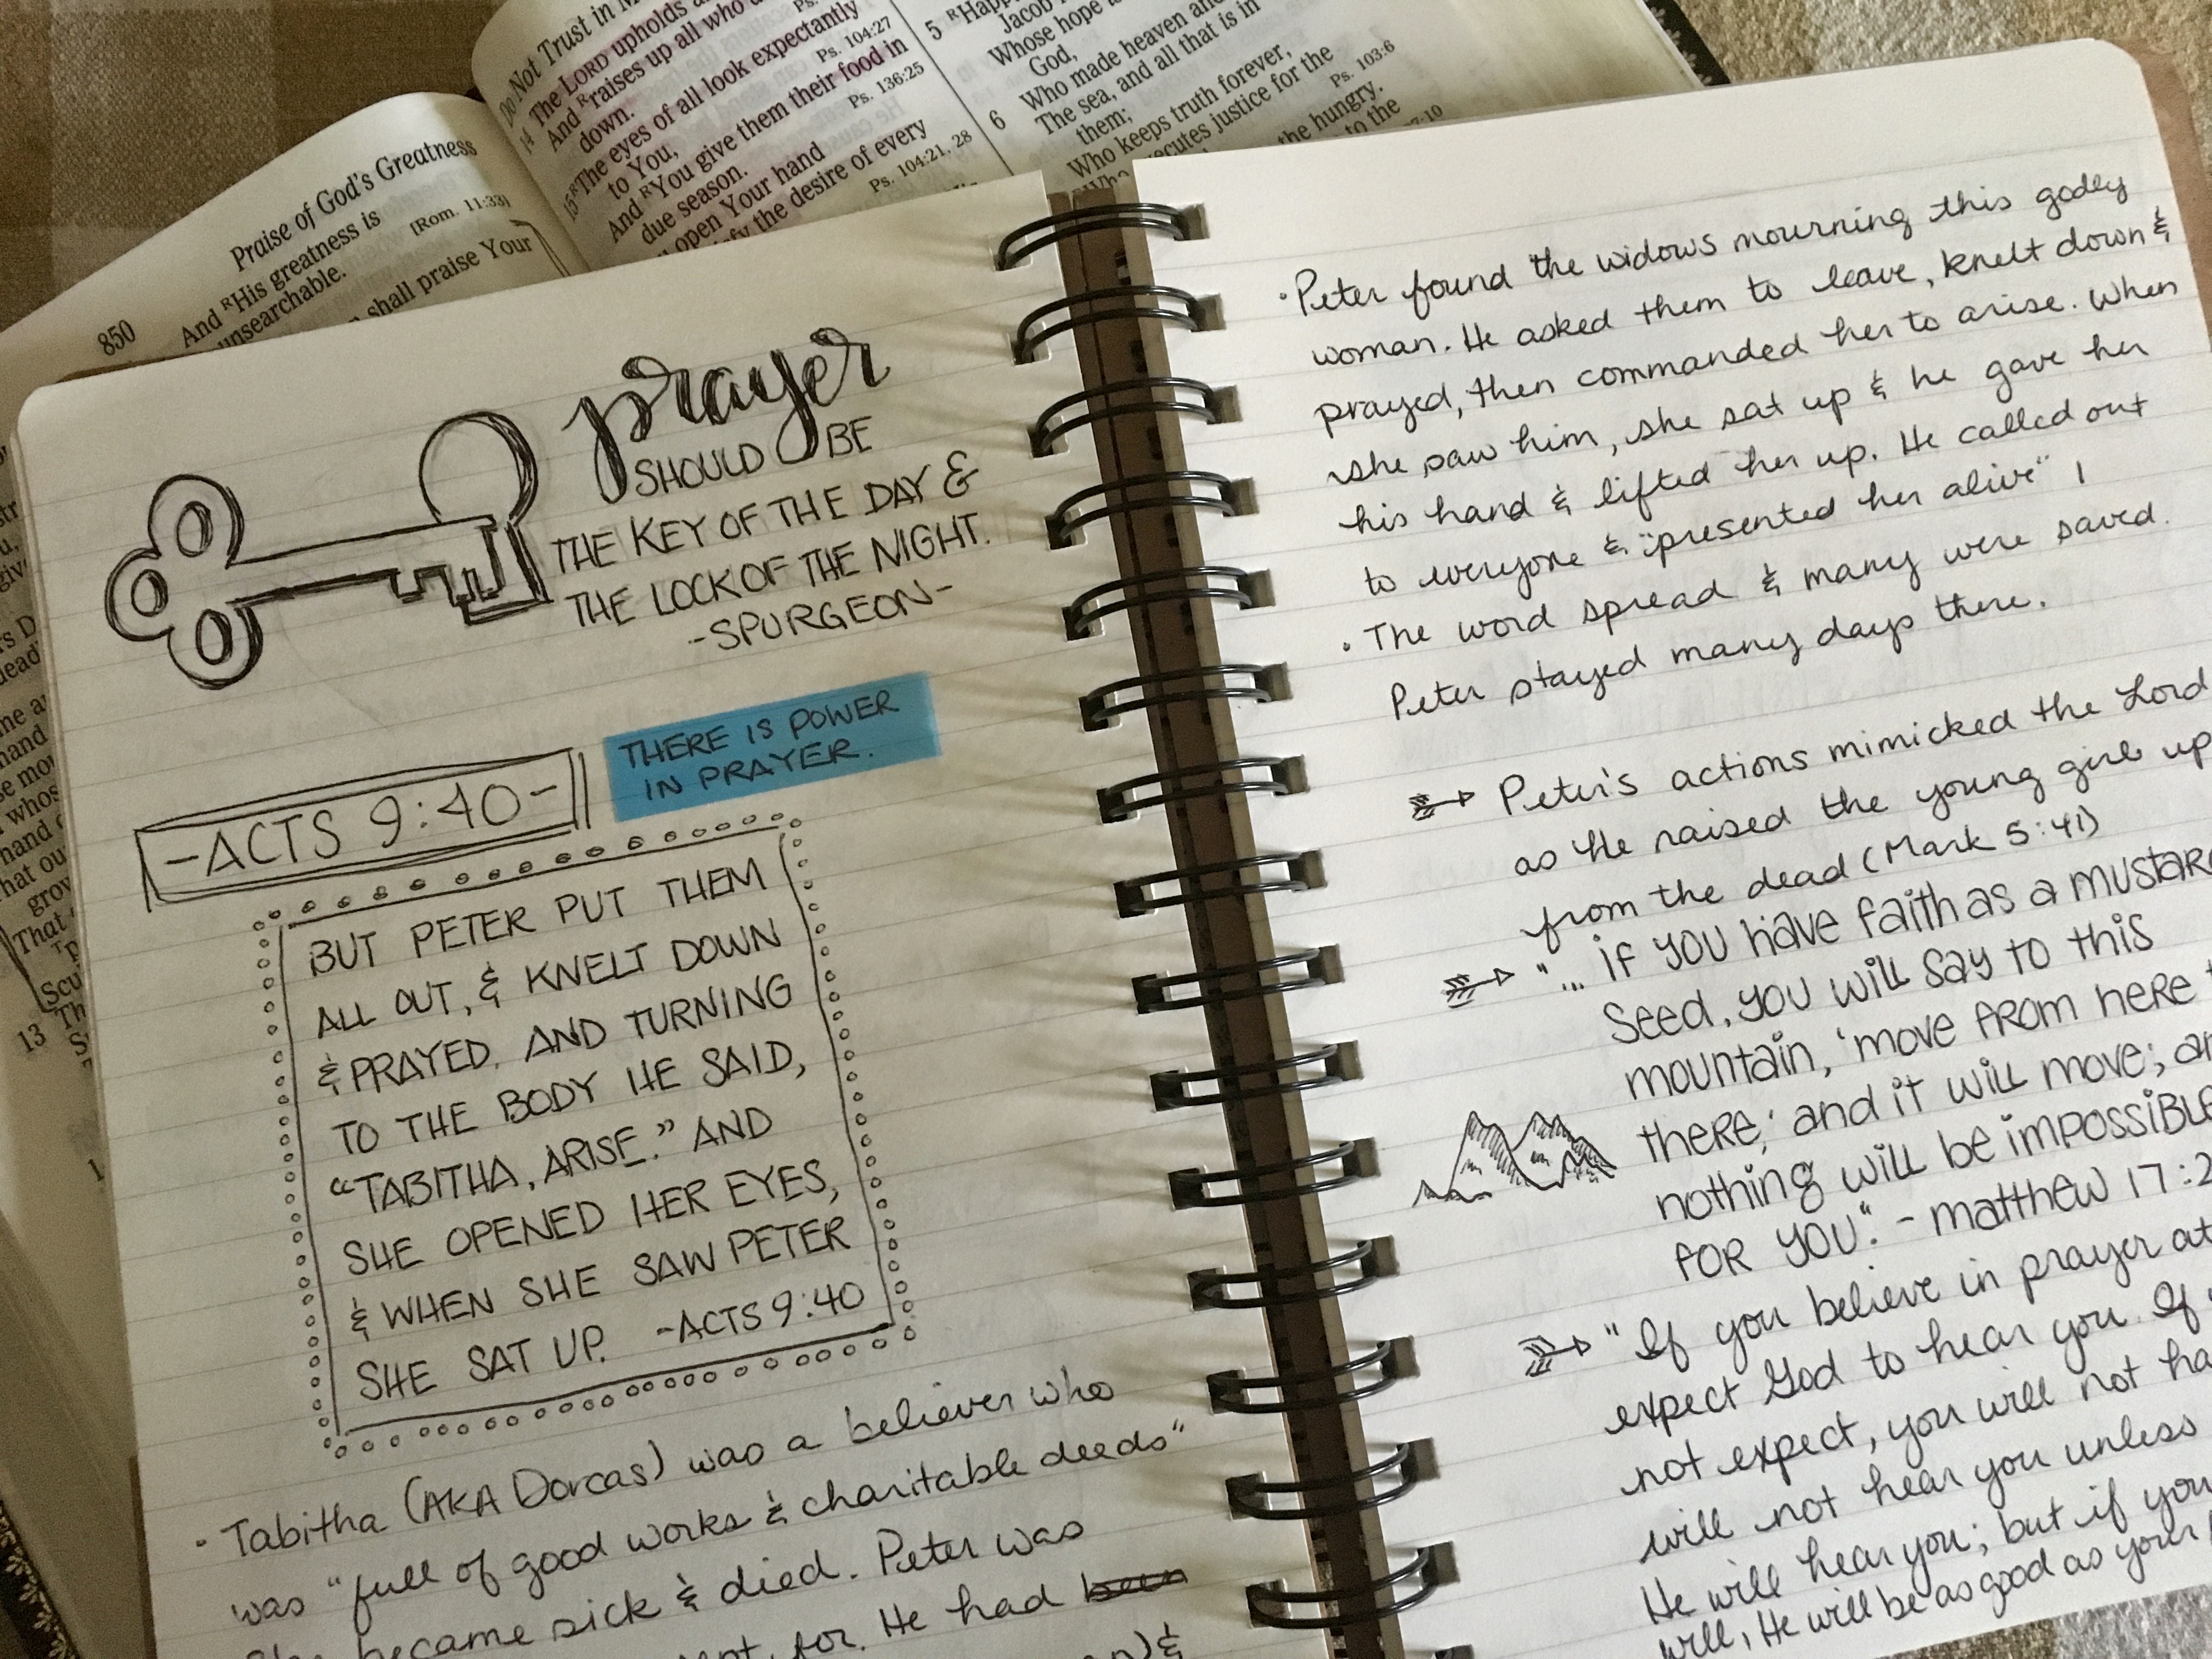 Do Not Trust in
14 The LORD upholds
And Rraises up all who
down.
Ps. 104:27
15 RThe eyes of all look expectantly
to You,
And RYou give them their food in
due season.
Ps. 136:25
open Your hand
the desire of every
Ps. 104:21, 28
5
Jacob
Whose hope
God,
6 Who made heaven and
The sea, and all that is in
them;
Who keeps truth forever,
Ps. 103:6
executes justice for the
the hungry.
to the
850
Praise of God's Greatness
And RHis greatness is
unsearchable.
[Rom. 11:33]
shall praise Your
13
prayer
SHOULD BE
THE KEY OF THE DAY &
THE LOCK OF THE NIGHT.
-SPURGEON-
THERE IS POWER
IN PRAYER.
-ACTS 9:40-
BUT PETER PUT THEM
ALL OUT, & KNELT DOWN
& PRAYED. AND TURNING
TO THE BODY HE SAID,
"TABITHA, ARISE." AND
SHE OPENED HER EYES,
& WHEN SHE SAW PETER
SHE SAT UP. -ACTS 9:40
• Tabitha (AKA Dorcas) was a believer who
was "full of good works & charitable deeds"
She became sick & died. Peter was
for. He had been
&
• Peter found the widows mourning this godly
woman. He asked them to leave, knelt down &
prayed, then commanded her to arise. When
she saw him, she sat up & he gave her
his hand & lifted her up. He called out
to everyone & "presented her alive" !
• The word spread & many were saved.
Peter stayed many days there.
Peter's actions mimicked the Lord
as He raised the young girl up
from the dead (Mark 5:41)
"... if you have faith as a mustard
seed, you will say to this
mountain, 'move from here
there,' and it will move; and
nothing will be impossible
for you". - matthew 17:2
"If you believe in prayer at
expect God to hear you. If
not expect, you will not ha
will not hear you unless
He will hear you; but if you
will, He will be as good as your